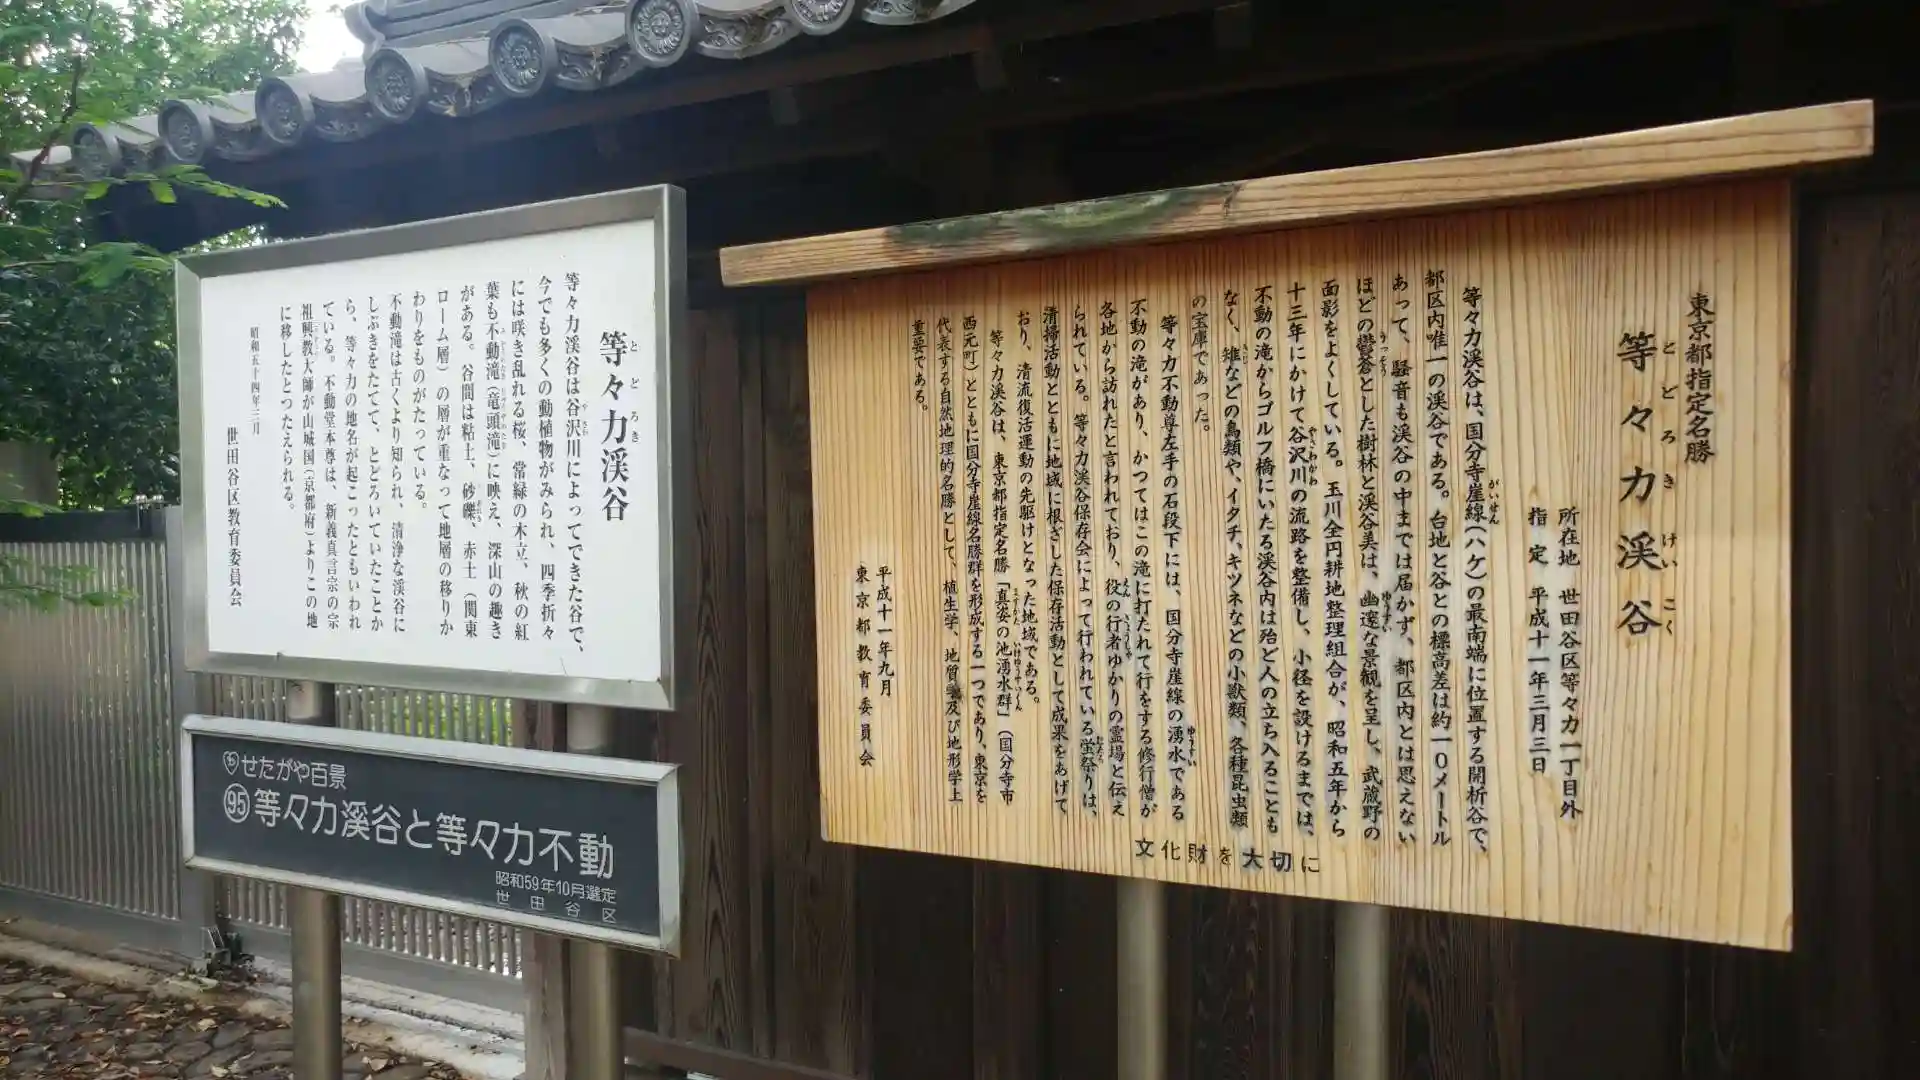 等々力渓谷
とどろき
等々力渓谷は谷沢川によってできた谷で、
やざわ
今でも多くの動植物がみられ、四季折々
には咲き乱れる桜、常緑の木立、秋の紅
葉も不動滝(竜頭滝)に映え、深山の趣き
がある。谷間は粘土、砂礫、赤土(関東
ローム層)の層が重なって地層の移りか
わりをものがたっている。
不動滝は古くより知られ、清浄な渓谷に
しぶきをたてて、とどろいていたことか
ら、等々力の地名が起こったともいわれ
ている。不動堂本尊は、新義真言宗の宗
祖興教大師が山城国(京都府)よりこの地
に移したとつたえられる。
昭和五十四年三月
世田谷区教育委員会
せたがや百景
95 等々力渓谷と等々力不動
昭和59年10月選定
世田谷区
東京都指定名勝
等々力渓谷
とどろきけいこく
所在地 世田谷区等々力一丁目外
指定 平成十一年三月三日
等々力渓谷は、国分寺崖線(ハケ)の最南端に位置する開析谷で、
がいせん
都区内唯一の渓谷である。台地と谷との標高差は約一〇メートル
あって、騒音も渓谷の中までは届かず、都区内とは思えない
ほどの鬱蒼とした樹林と渓谷美は、幽邃な景観を呈し、武蔵野の
うっそう
ゆうすい
面影をよくしている。玉川全円耕地整理組合が、昭和五年から
十三年にかけて谷沢川の流路を整備し、小径を設けるまでは、
やざわがわ
不動の滝からゴルフ橋にいたる渓谷内は殆ど人の立ち入ることも
なく、雉などの鳥類や、イタチ、キツネなどの小獣類、各種昆虫類
きじ
の宝庫であった。
等々力不動尊左手の石段下には、国分寺崖線の湧水である
ゆうすい
不動の滝があり、かつてはこの滝に打たれて行をする修行僧が
各地から訪れたと言われており、役の行者ゆかりの霊場と伝え
えん
ぎょうじゃ
られている。等々力渓谷保存会によって行われている蛍祭りは、
ほたる
清掃活動とともに地域に根ざした保存活動として成果をあげて
おり、清流復活運動の先駆けとなった地域である。
等々力渓谷は、東京都指定名勝「真姿の池湧水群」(国分寺市
ますがた
いけゆうすいぐん
西元町)とともに国分寺崖線名勝群を形成する一つであり、東京を
代表する自然地理的名勝として、植生学、地質学及び地形学上
重要である。
平成十一年九月
東京都教育委員会
文化財を大切に